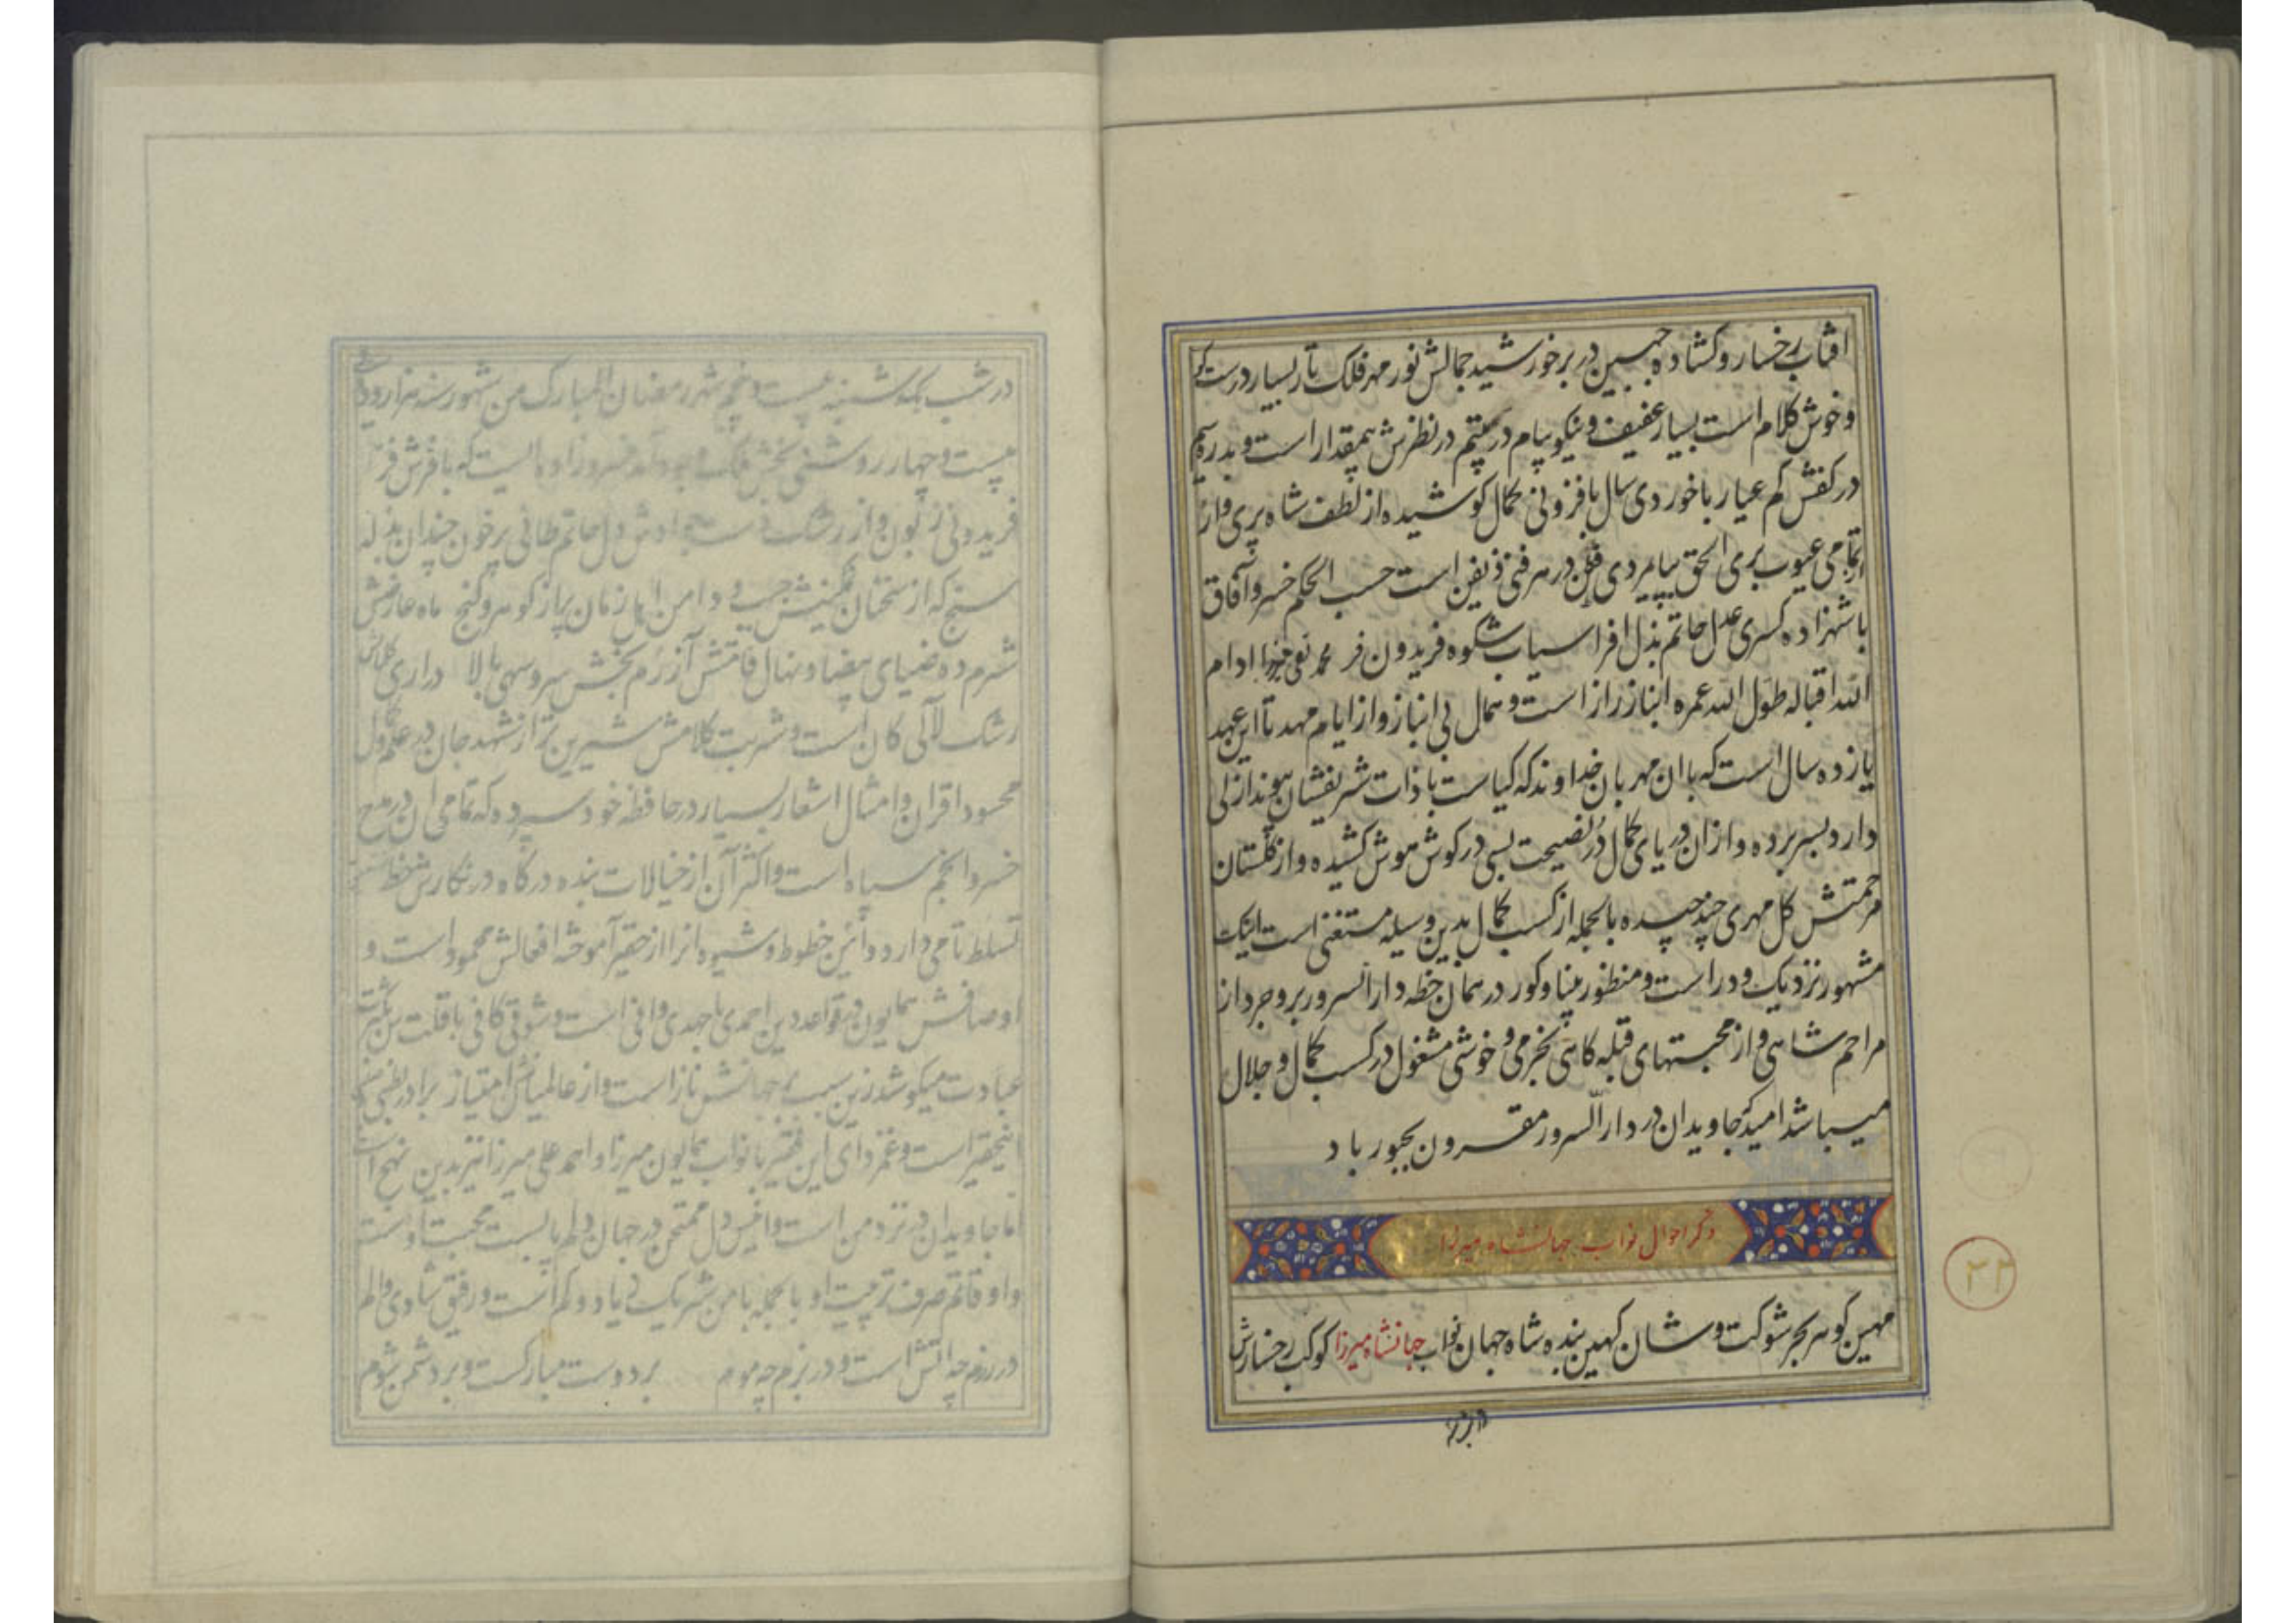 افتاب رخسار و کشاده جبین در بر خورشید جمالش نور مهر فلک تار بسیار درست کو
و خوش کلام است بسیار عفیف و نیکو پیام در یتیم در نظرش بیمقدار است و بدره سیم
در کفش کم عیار با خوردی سال بافزونی کمال کوشیده از لطف شاه پری وار
از تمامی عیوب بری الحق بیامردی فطن در هر فنی ذیفن است حسب الحکم خسرو آفاق
با شهزاده کسری عدل حاتم بذل افراسیاب شکوه فریدون فر محمد تقی میرزا ادام
الله اقباله طول الله عمره انباز راز است و بمال بی انباز و از ایام مهد تا این عهد
یازده سال است که با ان مهربان خداوند که کیاست با ذات شریفشان پیوند ازلی
دارد بسر برده و از ان دریای کمال در نصیحت بسی در کوش هوش کشیده و از گلستان
مرحمتش کل مهری چند چیده بالجمله از کسب کمال بدین وسیله مستغنی است اینک
مشهور نزدیک و دور است و منظور بینا و کور در همان خطه دارالسرور بروجرد از
مراحم شاهی و از محبتهای قبله کاهی بخرمی و خوشی مشغول در کسب کمال و جلال
میباشد امید که جاویدان در دارالسرور مقرون بحبور باد
ذکر احوال نواب جهانشاه میرزا
۲۲
مهین کوهر بحر شوکت و شان کهین بنده شاه جهان نواب جهانشاه میرزا کوکب رخسارش
در شب یکشنبه بیست و پنجم شهر رمضان المبارک من شهور سنه هزار و دو
بیست و چهار روشنی بخش ملک وجود آمد خسروزاده ایست که با فرش فر
فریدونی زبون و از رشک دست جوادش دل حاتم طائی پر خون چندان بذله
سنج که از سخنان نمکینش جیب و دامن اهل زمان پر از کوهر و کنج ماه عارضش
شرم ده ضیای بیضا و نهال قامتش آزرم بخش سرو سهی بالا دراری کلامش
رشک لآلی کان است و شربت کلامش شیرین تر از شهد جان در علم
محسود اقران و امثال اشعار بسیار در حافظه خود سپرده که تمامی ان در مدح
خسرو انجم سپاه است و اکثر آن از خیالات بنده درکاه در نکارش خط
تسلط تامی دارد و آئین خطوط و شیوه انرا از حقیر آموخته افعالش محمود است و
اوصافش همایون در قواعد دین احمدی با جهدی وافی است و شوقی کافی با قلت سن بکثرت
عبادت میکوشد زین سبب بجهانش ناز است و از عالمیانش امتیاز برادر بطنی
اینحقیر است و غمزدای این فقیر با نواب همایون میرزا و احمد علی میرزا نیز بدین نهج است
اما جاویدان در نزد من است و انیس دل ممتحن در جهان دلم پابست محبت اوست
و اوقاتم صرف تربیت او بالجمله با من شریک بی یاد و کم است و رفیق شادی و الم
در رزم چو آتش است و در بزم چو موم بر دوست مبارکست و بر دشمن شوم